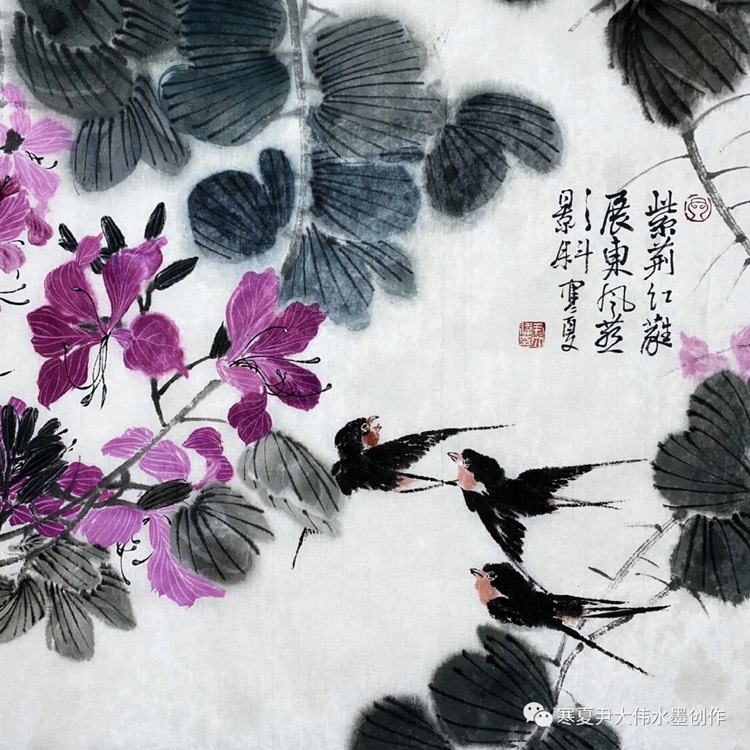 紫荆红
展東風燕
影斜寒夏
寒夏尹大伟水墨创作